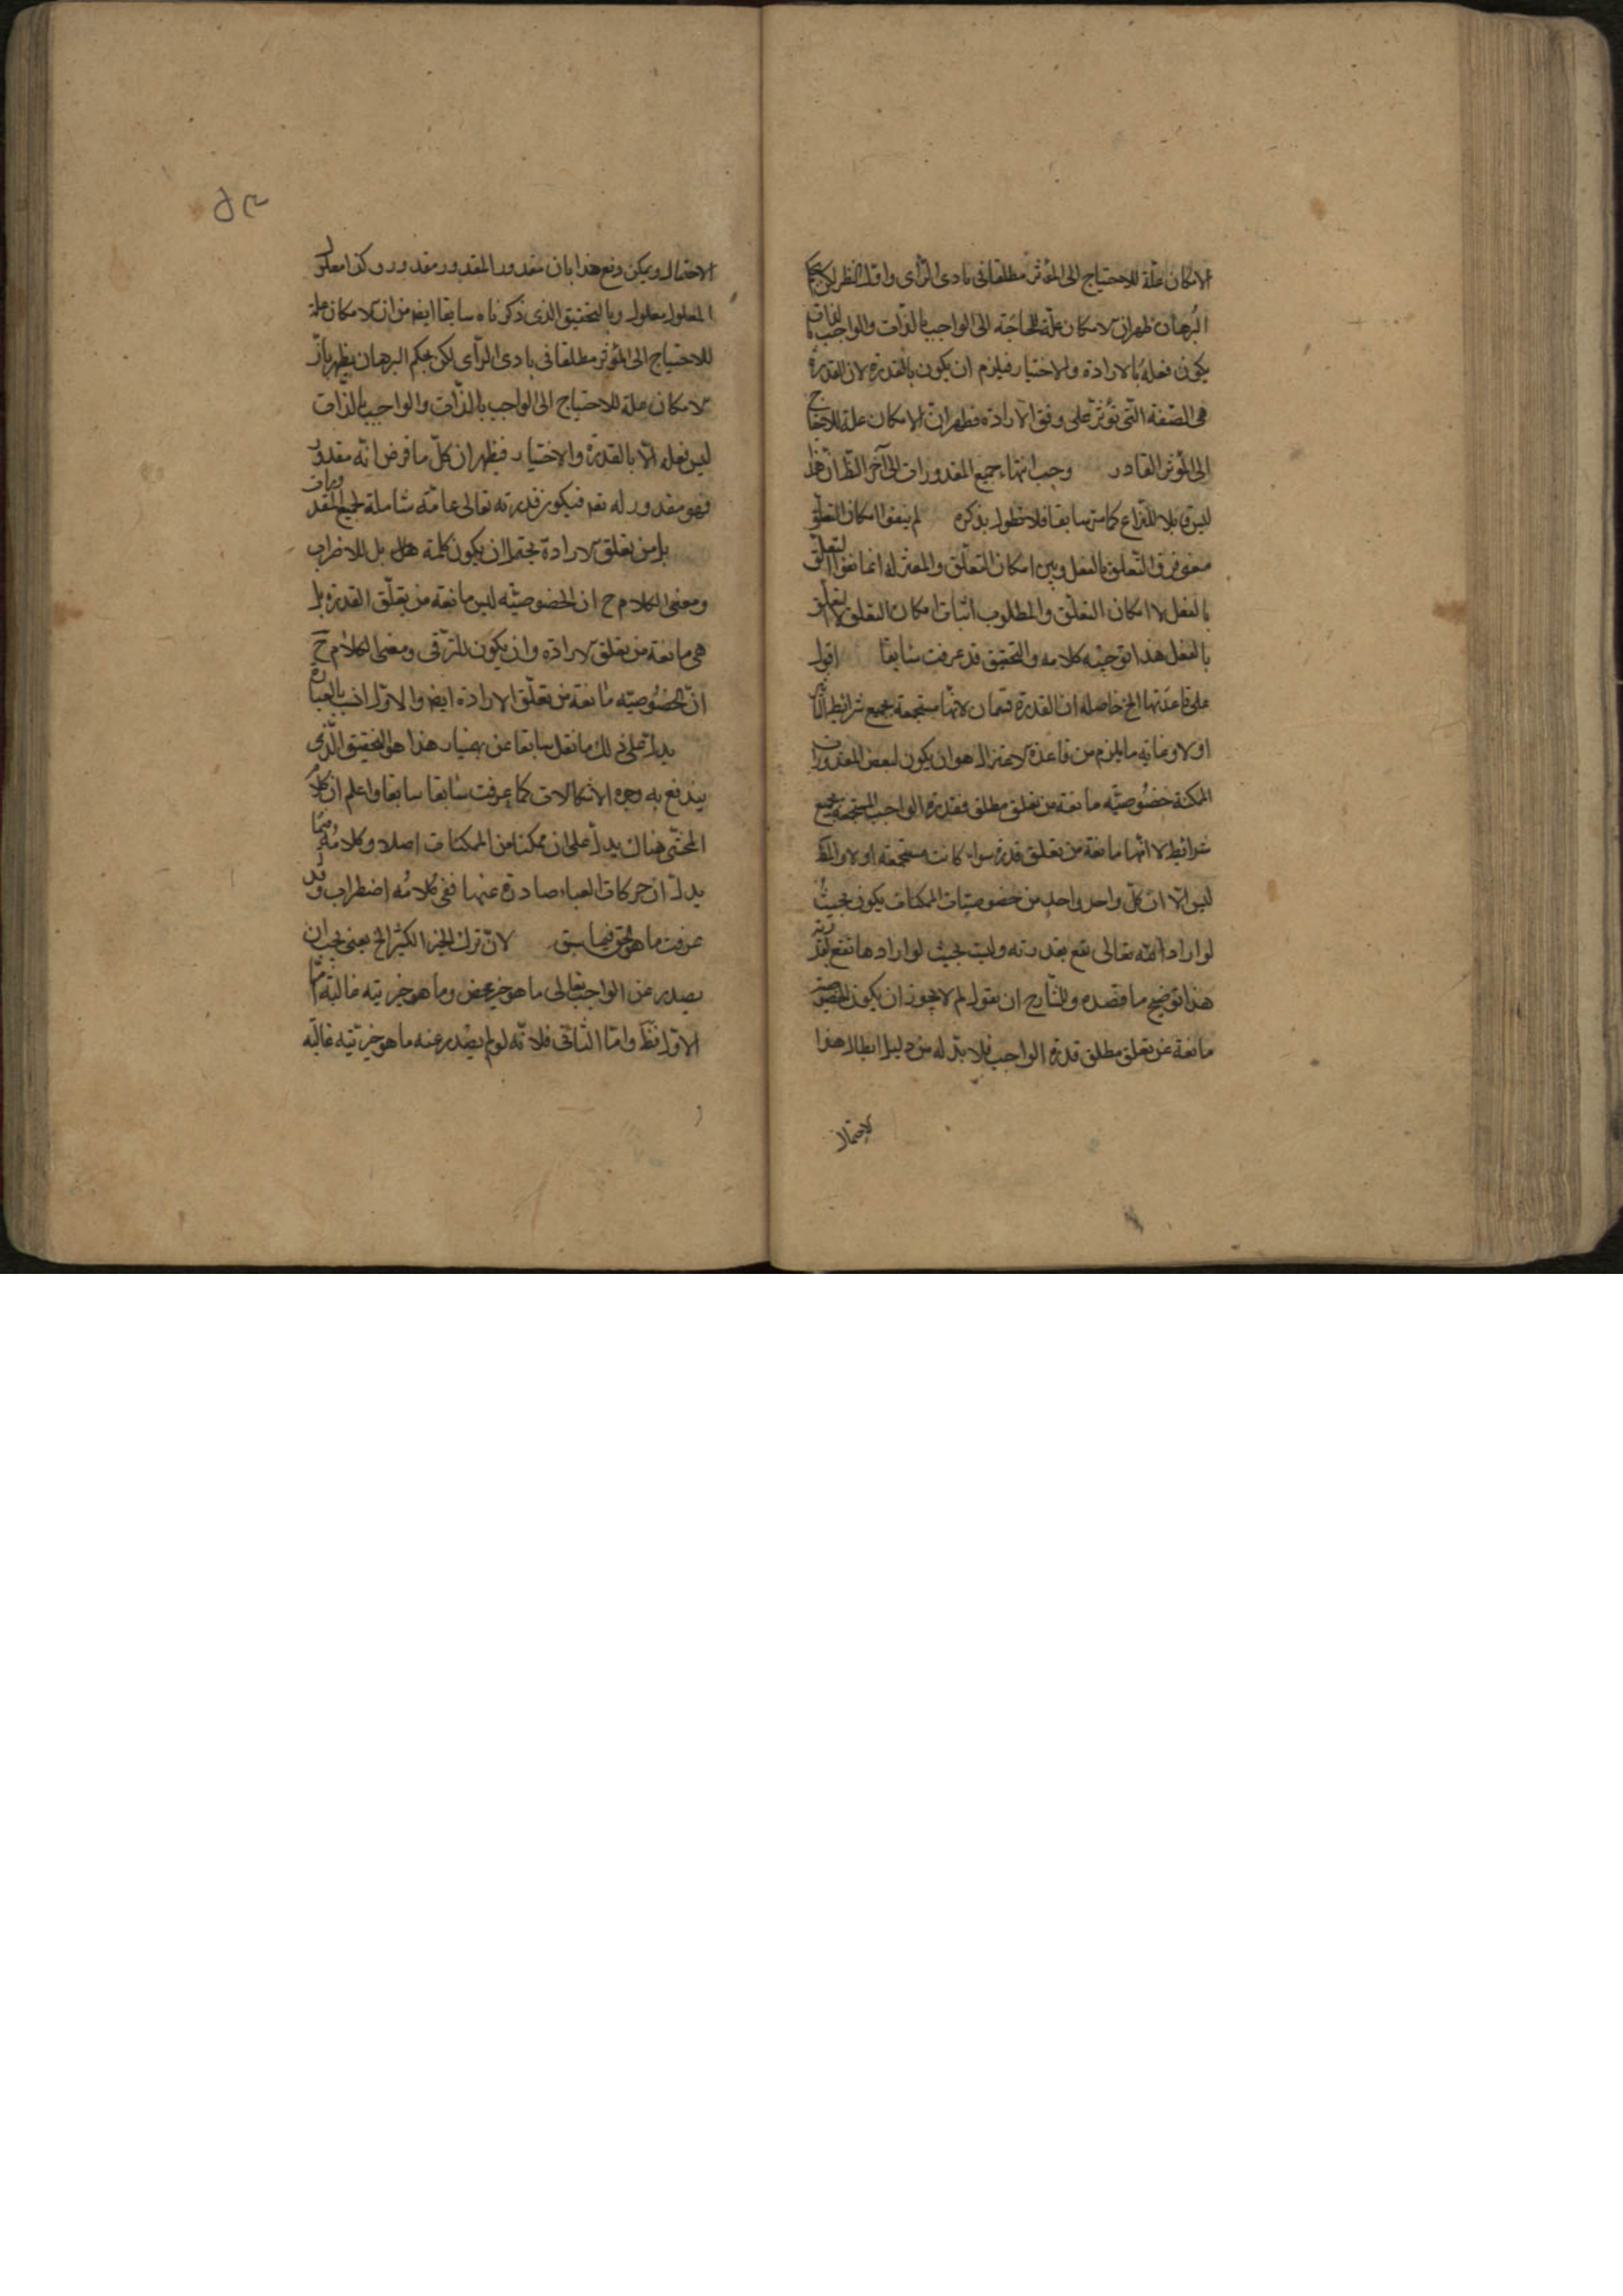 الامكان علة للاحتياج الى المؤثر مطلقا فى بادى الرأى واول النظر لكن بحكم
البرهان ظهر ان الامكان علة للحاجة الى الواجب بالذات والواجب بالذات
يكون فعله بالارادة والاختيار فيلزم ان يكون بالقدرة لان القدرة
هى الصفة التى تؤثر على وفق الارادة فظهر ان الامكان علة للاحتياج
الى المؤثر القادر وجب انتهاء جميع المقدورات الى آخر الظ ان هذا
ليس قابلا للنزاع كما مر سابقا فلا نطول بذكره لم ينفوا امكان التعلق
فرق التعلق بالفعل وبين امكان التعلق والمعتزله انما نفوا التعلق
بالفعل لا امكان التعلق والمطلوب اثبات امكان التعلق لا التعلق
بالفعل هذا توجيه كلامه والتحقيق قد عرفت سابقا اقول
على قاعدتها الخ حاصله ان القدرة قسمان لانها مستجمعة بجميع شرائط التأثير
او لا وغاية ما يلزم من قاعدة الاعتزال هو ان يكون لبعض المقدورات
الممكنة خصوصيته مانعة من تعلق مطلق فقدرة الواجب المستجمعة بجميع
شرائط لا انها مانعة من تعلق قدرة سواء كانت مستجمعة او لا والمط
ليس الا ان كل واحد واحد من خصوصيات الممكنات يكون بحيث
لو اراد الله تعالى تقع بقدرته وليت بحيث لو ارادها تقع بقدرته
هذا توضيح ما قصده وللشارح ان يقول لم لا يجوز ان يكون الخصوصية
مانعة عن تعلق مطلق قدرة الواجب فلا بد له من دليل ابطال هذا
الاحتمال
الاحتمال ويمكن دفع هذا بان مقدور المقدور مقدور وكذا معلول
المعلول معلول وبالتحقيق الذى ذكرناه سابقا ايضا من ان الامكان علة
للاحتياج الى المؤثر مطلقا فى بادى الرأى لكن بحكم البرهان يظهر بان
الامكان علة للاحتياج الى الواجب بالذات والواجب بالذات
ليس فعله الا بالقدرة والاختيار فيظهر ان كل ما فرض انه مقدور
فهو مقدور له تعه فيكون قدرته تعالى عامة شاملة لجميع المقدورات
بل من تعلق الارادة يحتمل ان يكون كلمة بل للاضراب
ومعنى الكلام ح ان الخصوصيته ليس مانعة من تعلق القدرة بل
هى مانعة من تعلق الارادة وان يكون للترقى ومعنى الكلام ح
ان الخصوصيته مانعة من تعلق الارادة ايضا والاول انسب بالعبارة
يدل على ذلك ما نقل سابقا عن بهمنيار هذا هو التحقيق الذى
يندفع به وجوه الاشكالات كما عرفت سابقا سابقا واعلم ان كلام
المحشى هناك يدل على ان ممكنا من الممكنات اصلا وكلامه
يدل ان حركات العباد صادرة عنها ففى كلامه اضطراب وقد
عرفت ما هو الحق فيما سبق لان ترك الخير الكثير الخ يعنى يجب ان
يصدر عن الواجب تعالى ما هو خير محض وما هو خيريته غالبة اما
الاول فظ واما الثانى فلانه لو لم يصدر عنه ما هو خيريته غالبة